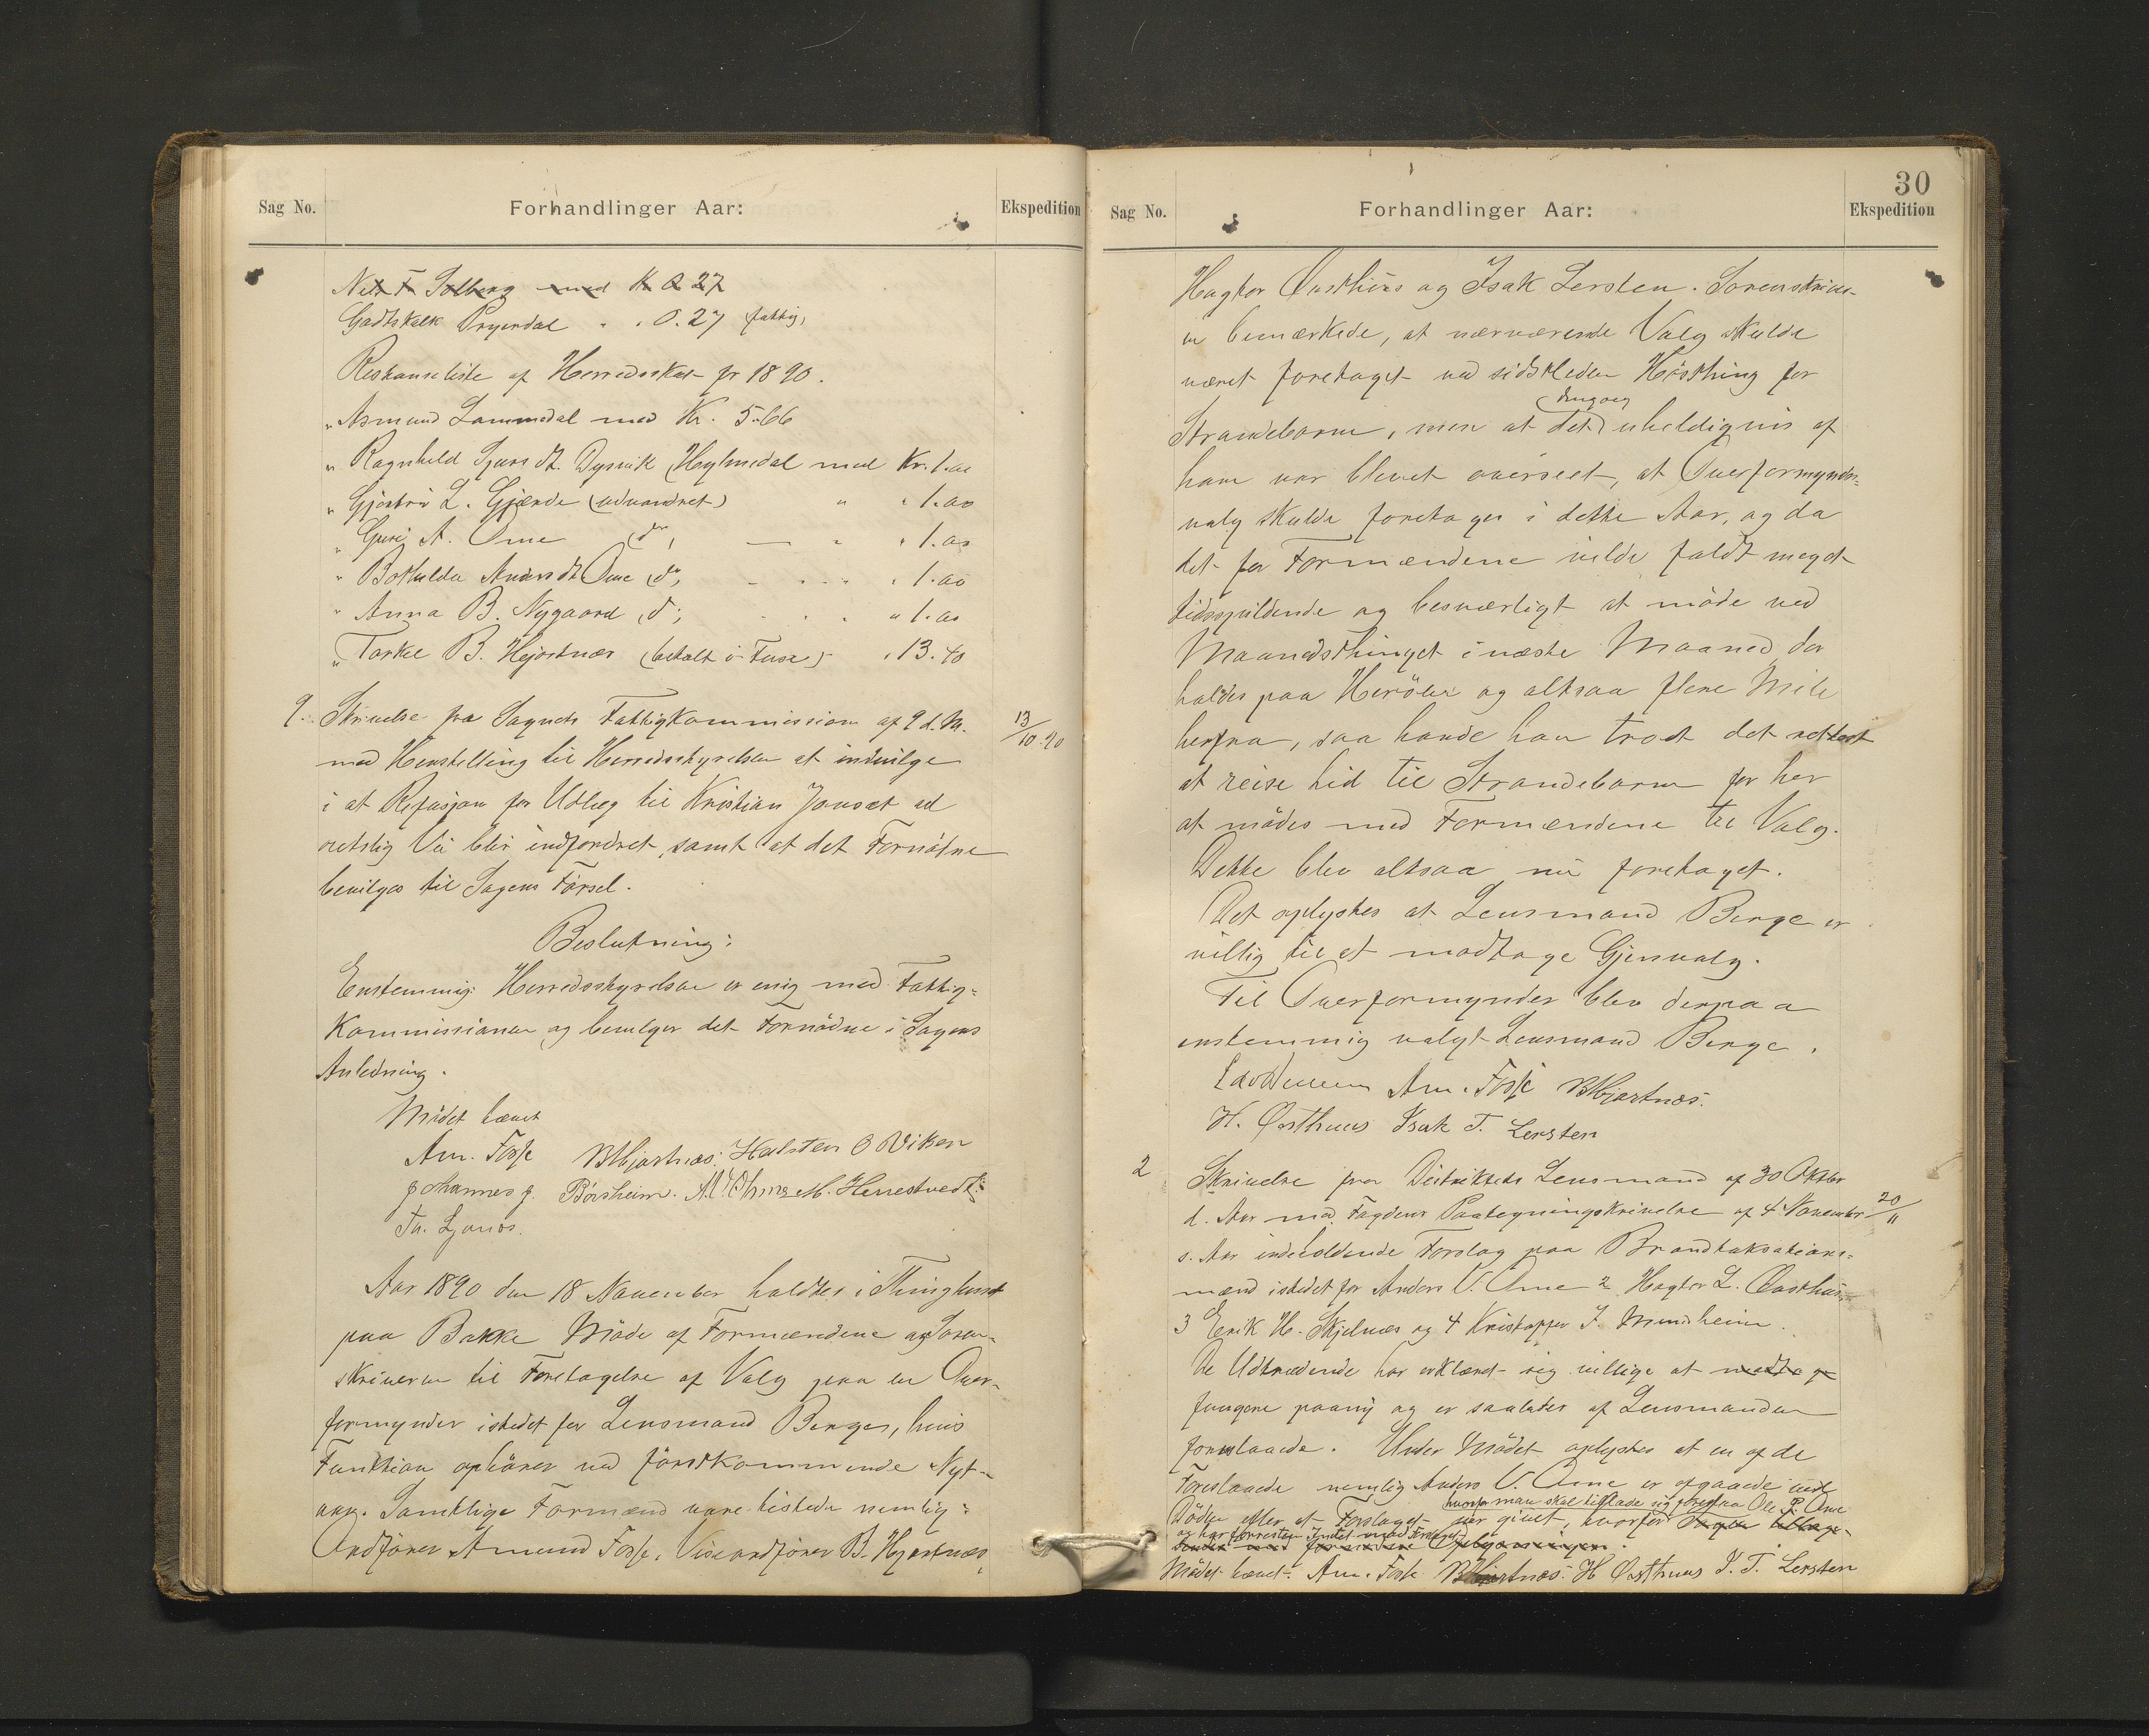 Sag No.
Forhandlinger Aar:
Ekspedition
Nels T. Solberg med Kr 0.27
Godtskalk Pryserdal " " 0.27 fattig,
Restanseliste af Herredsskat for 1890.
" Asmund Lammedal med Kr. 5.66
" Ragnhild Sjursdt. Dysvik (Hylmedal med Kr. 1.00
" Gjertrü L. Gjærde (udvandret) " " 1.00
" Guri A. Ome (do, — " " 1.00
" Bothilda Andersdt Ome (do, - - - " 1.00
" Anna B. Nygaard (do; - - - " 1.00
" Torkel B. Hejartnæs (betalt i Fuse) - " 13.40
9. Skrivelse fra Sognets Fattigkommission af 9 d. M.
13/10.90
med Henstilling til Herredsstyrelsen at indvilge
i at Refusjon for Udlæg til Kristian Jonsæt ad
retslig Vei blir indfordret, samt at det Fornødne
bevilges til Sagens Førsel.
Beslutning:
Enstemmig: Herredsstyrelsen er enig med Fattig=
Kommissionen og bevilger det Fornødne i Sagens
Anledning.
Mødet hævet
Am. Fosse BHjartnæs. Halsten O Viken
Johannes J. Børsheim. A. Ohma M. Herrestvedt.
Th. Ljones.
Aar 1890 den 18 November holdtes i Thinghuset
paa Bakke Møde af Formændene og Soren-
skriveren til Foretagelse af Valg paa en Over-
formynder istedet for Lensmand Berge, hvis
Funktion ophører ved førstkommende Nyt-
aar. Samtlige Formænd vare tilstede nemlig:
Ordfører Amund Fosse, Viseordfører B. Hjartnæs,
30
Sag No.
Forhandlinger Aar:
Ekspedition
Hagtor Østhus og Isak Lersten. Sorenskrive-
en bemærkede, at nærværende Valg skulde
været foretaget ved sidstleden Høstthing for
Strandebarm, men at det uheldigvis af
ham var blevet overseet, at Overformynder=
valg skulde foretages i dette Aar, og da
det for Formændene vilde faldt meget
tidsspildende og besværligt at møde ved
Maanedsthinget i næste Maaned der
holdes paa Herøen og altsaa flere Mile
herfra, saa havde han troet det rettest
at reise hid til Strandebarm for her
at mødes med Formændene til Valg.
Dette blev altsaa nu foretaget.
Det oplystes at Lensmand Berge er
villig til at modtage Gjenvalg.
Til Overformynder blev derpaa
enstemmig valgt Lensmand Berge.
Am. Fosse BHjartnæs.
H. Østhuus Isak T. Lersten
2 Skrivelse fra Distriktets Lensmand af 30 Oktbr
d. Aar med Fogdens Paategningskrivelse af 4 November
20/11
s. Aar indeholdende Forslag paa Brandtaksations=
mænd istedet for Anders V. Ome 2 Hagtor L. Østhus
3 Erik H. Skjelnæs og 4 Kristoffer J. Mundheim.
De Udtrædende har erklæret sig villige at modtage
fungere paany og er saaledes af Lensmanden
foreslaaede. Under Mødet oplystes at en af de
Foreslaaede nemlig Anders V. Ome er afgaaet ved
hvorfor man skal tillade sig foreslaa Ole P. Ome
Døden efter at Forslaget er givet, hvorfor Sagen tilbage-
og har forresten Intet mod Forslaget
sendes med foranstaaende Oplysninger.
Mødet hævet. Am. Fosse BHjartnæs. H Østhuus I. T. Lersten